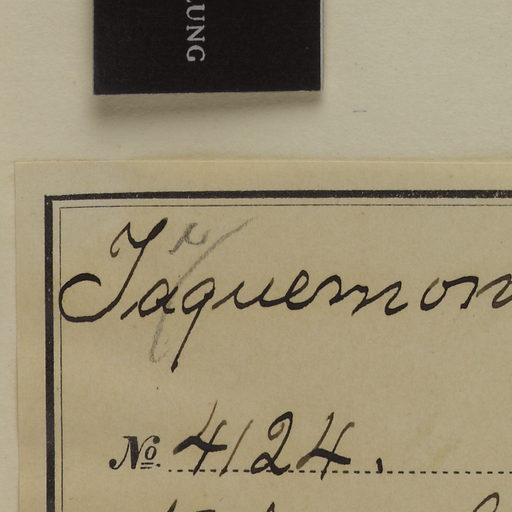 LUNG
Jaquemon
c
No. 4124.